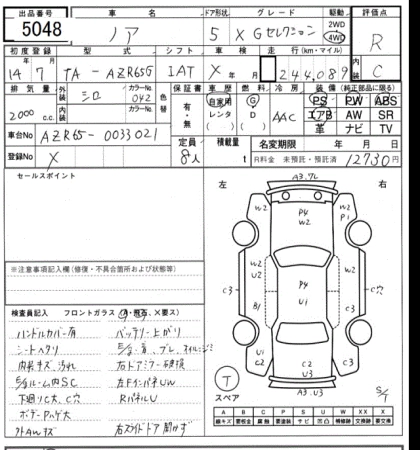 出品番号 車名 ドア形状 グレード 駆動 評価点
5048 ノア 5 X Gセレクション 2WD 4WD R
初度登録 型式 シフト 車検 走行(km・マイル) 内装
14年 7月 TA-AZR65G IAT X年 月 244,089 C
排気量 外装 カラーNo. 色替 保証書 車歴 燃料 冷房 装備(純正部品に限る)
2000 c.c. シロ 042 有・無 自家用 レンタ G D AAC PS PW ABS
エアB AW SR
革 ナビ TV
車台No AZR65-0033021 定員 8人 積載量 t
登録No X 名変期限 年 月 日
R料金 未預託・預託済 12730円
セールスポイント
左 右
A3.7L
W2
W2
P1
P4
W2
W2
U2
W2
P4
U1
C3
B1
C穴
C3
U1
C2
C2
U3
C3
A3.U3
S/T
T
スペア
※注意事項記入欄(修復・不具合箇所および状態等)
検査員記入 フロントガラス(X要ス)
ハンドルカバー有 バッテリー上がり
シートヘタリ
内装キズ、汚れ 右ドアミラー破損
E/gルーム内SC 左FインパネUW
下廻りC大、C穴 RパネルU
ボデーPハゲ大
外AWキズ 右スライドドア開かず
A B C P S U W XX X
線キズ 要板金 腐蝕 要塗装 サビ 凹凸 補修跡 交換跡 要交換